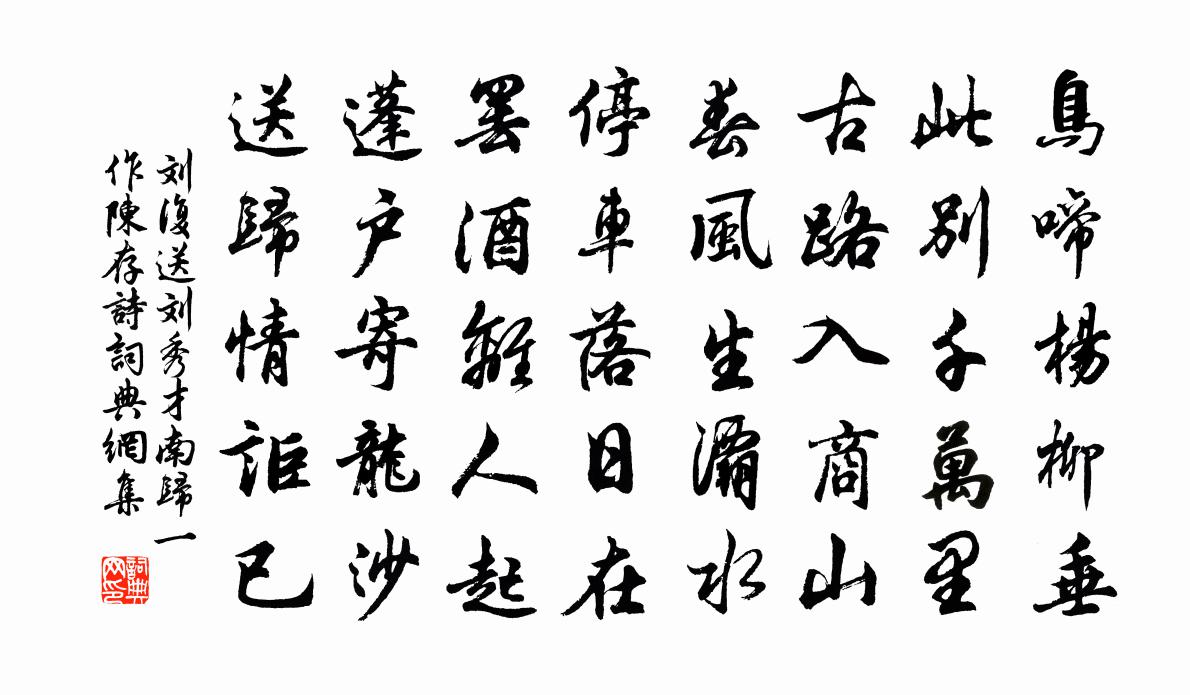 鳥啼楊柳垂
此別千萬里
古路入商山
春風生灞水
停車落日在
罷酒離人起
蓬户寄龍沙
送歸情詎已
刘復送刘秀才南歸一
作陳存詩詞典網集
詞典網印